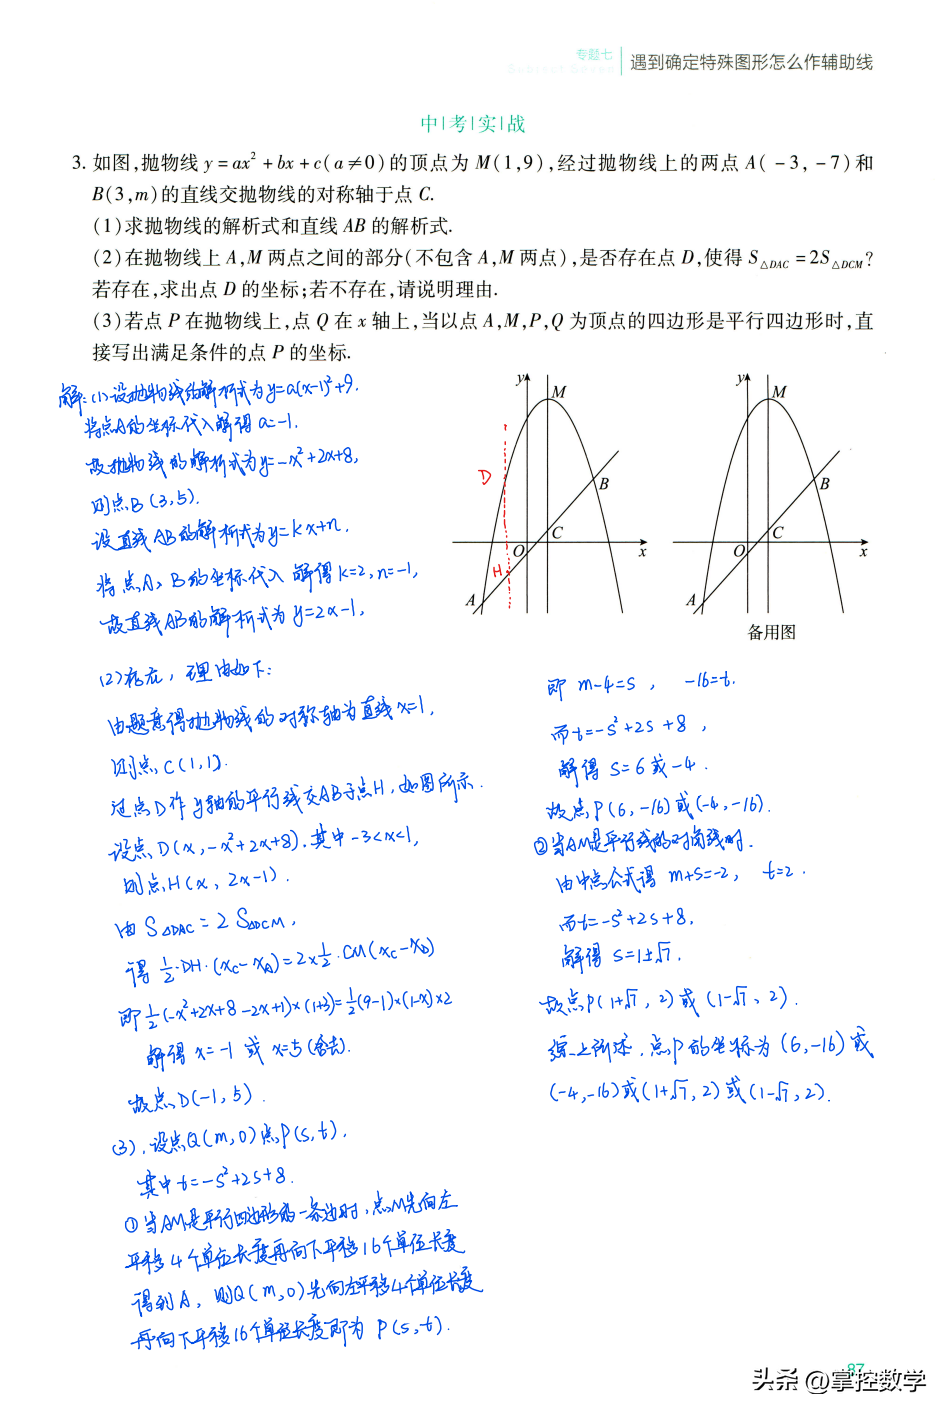 专题七
Subject Seven
遇到确定特殊图形怎么作辅助线
中|考|实|战
3. 如图,抛物线 y = ax² + bx + c(a≠0)的顶点为 M(1,9),经过抛物线上的两点 A(-3,-7)和
B(3,m)的直线交抛物线的对称轴于点 C.
(1)求抛物线的解析式和直线 AB 的解析式.
(2)在抛物线上 A,M 两点之间的部分(不包含 A,M 两点),是否存在点 D,使得 S△DAC = 2S△DCM?
若存在,求出点 D 的坐标;若不存在,请说明理由.
(3)若点 P 在抛物线上,点 Q 在 x 轴上,当以点 A,M,P,Q 为顶点的四边形是平行四边形时,直
接写出满足条件的点 P 的坐标.
解:(1)设抛物线的解析式为y=a(x-1)²+9.
将点A的坐标代入解得a=-1.
故抛物线的解析式为y=-x²+2x+8,
则点B(3,5).
设直线AB的解析式为y=kx+n.
将点A、B的坐标代入解得k=2,n=-1,
故直线AB的解析式为y=2x-1,
y
M
D
B
C
O
x
H
A
y
M
B
C
O
x
A
备用图
(2)存在,理由如下:
由题意得抛物线的对称轴为直线x=1,
则点C(1,1).
过点D作y轴的平行线交AB于点H,如图所示.
设点D(x,-x²+2x+8).其中-3<x<1,
则点H(x,2x-1).
由S△DAC=2S△DCM,
得½·DH·(xC-xA)=2×½·CM(xC-xD)
即½(-x²+2x+8-2x+1)×(1+3)=½(9-1)×(1-x)×2
解得x=-1或x=5(舍去).
故点D(-1,5).
(3).设点Q(m,0)点P(s,t).
其中t=-s²+2s+8.
①当AM是平行四边形的一条边时,点M先向左
平移4个单位长度再向下平移16个单位长度
得到A,则Q(m,0)先向左平移4个单位长度
再向下平移16个单位长度即为P(s,t).
即m-4=s,-16=t.
而t=-s²+2s+8,
解得s=6或-4.
故点P(6,-16)或(-4,-16).
②当AM是平行线的对角线时.
由中点公式得m+s=-2,t=2.
而t=-s²+2s+8,
解得s=1±√7.
故点P(1+√7,2)或(1-√7,2).
综上所述.点P的坐标为(6,-16)或
(-4,-16)或(1+√7,2)或(1-√7,2).
87
头条 @掌控数学